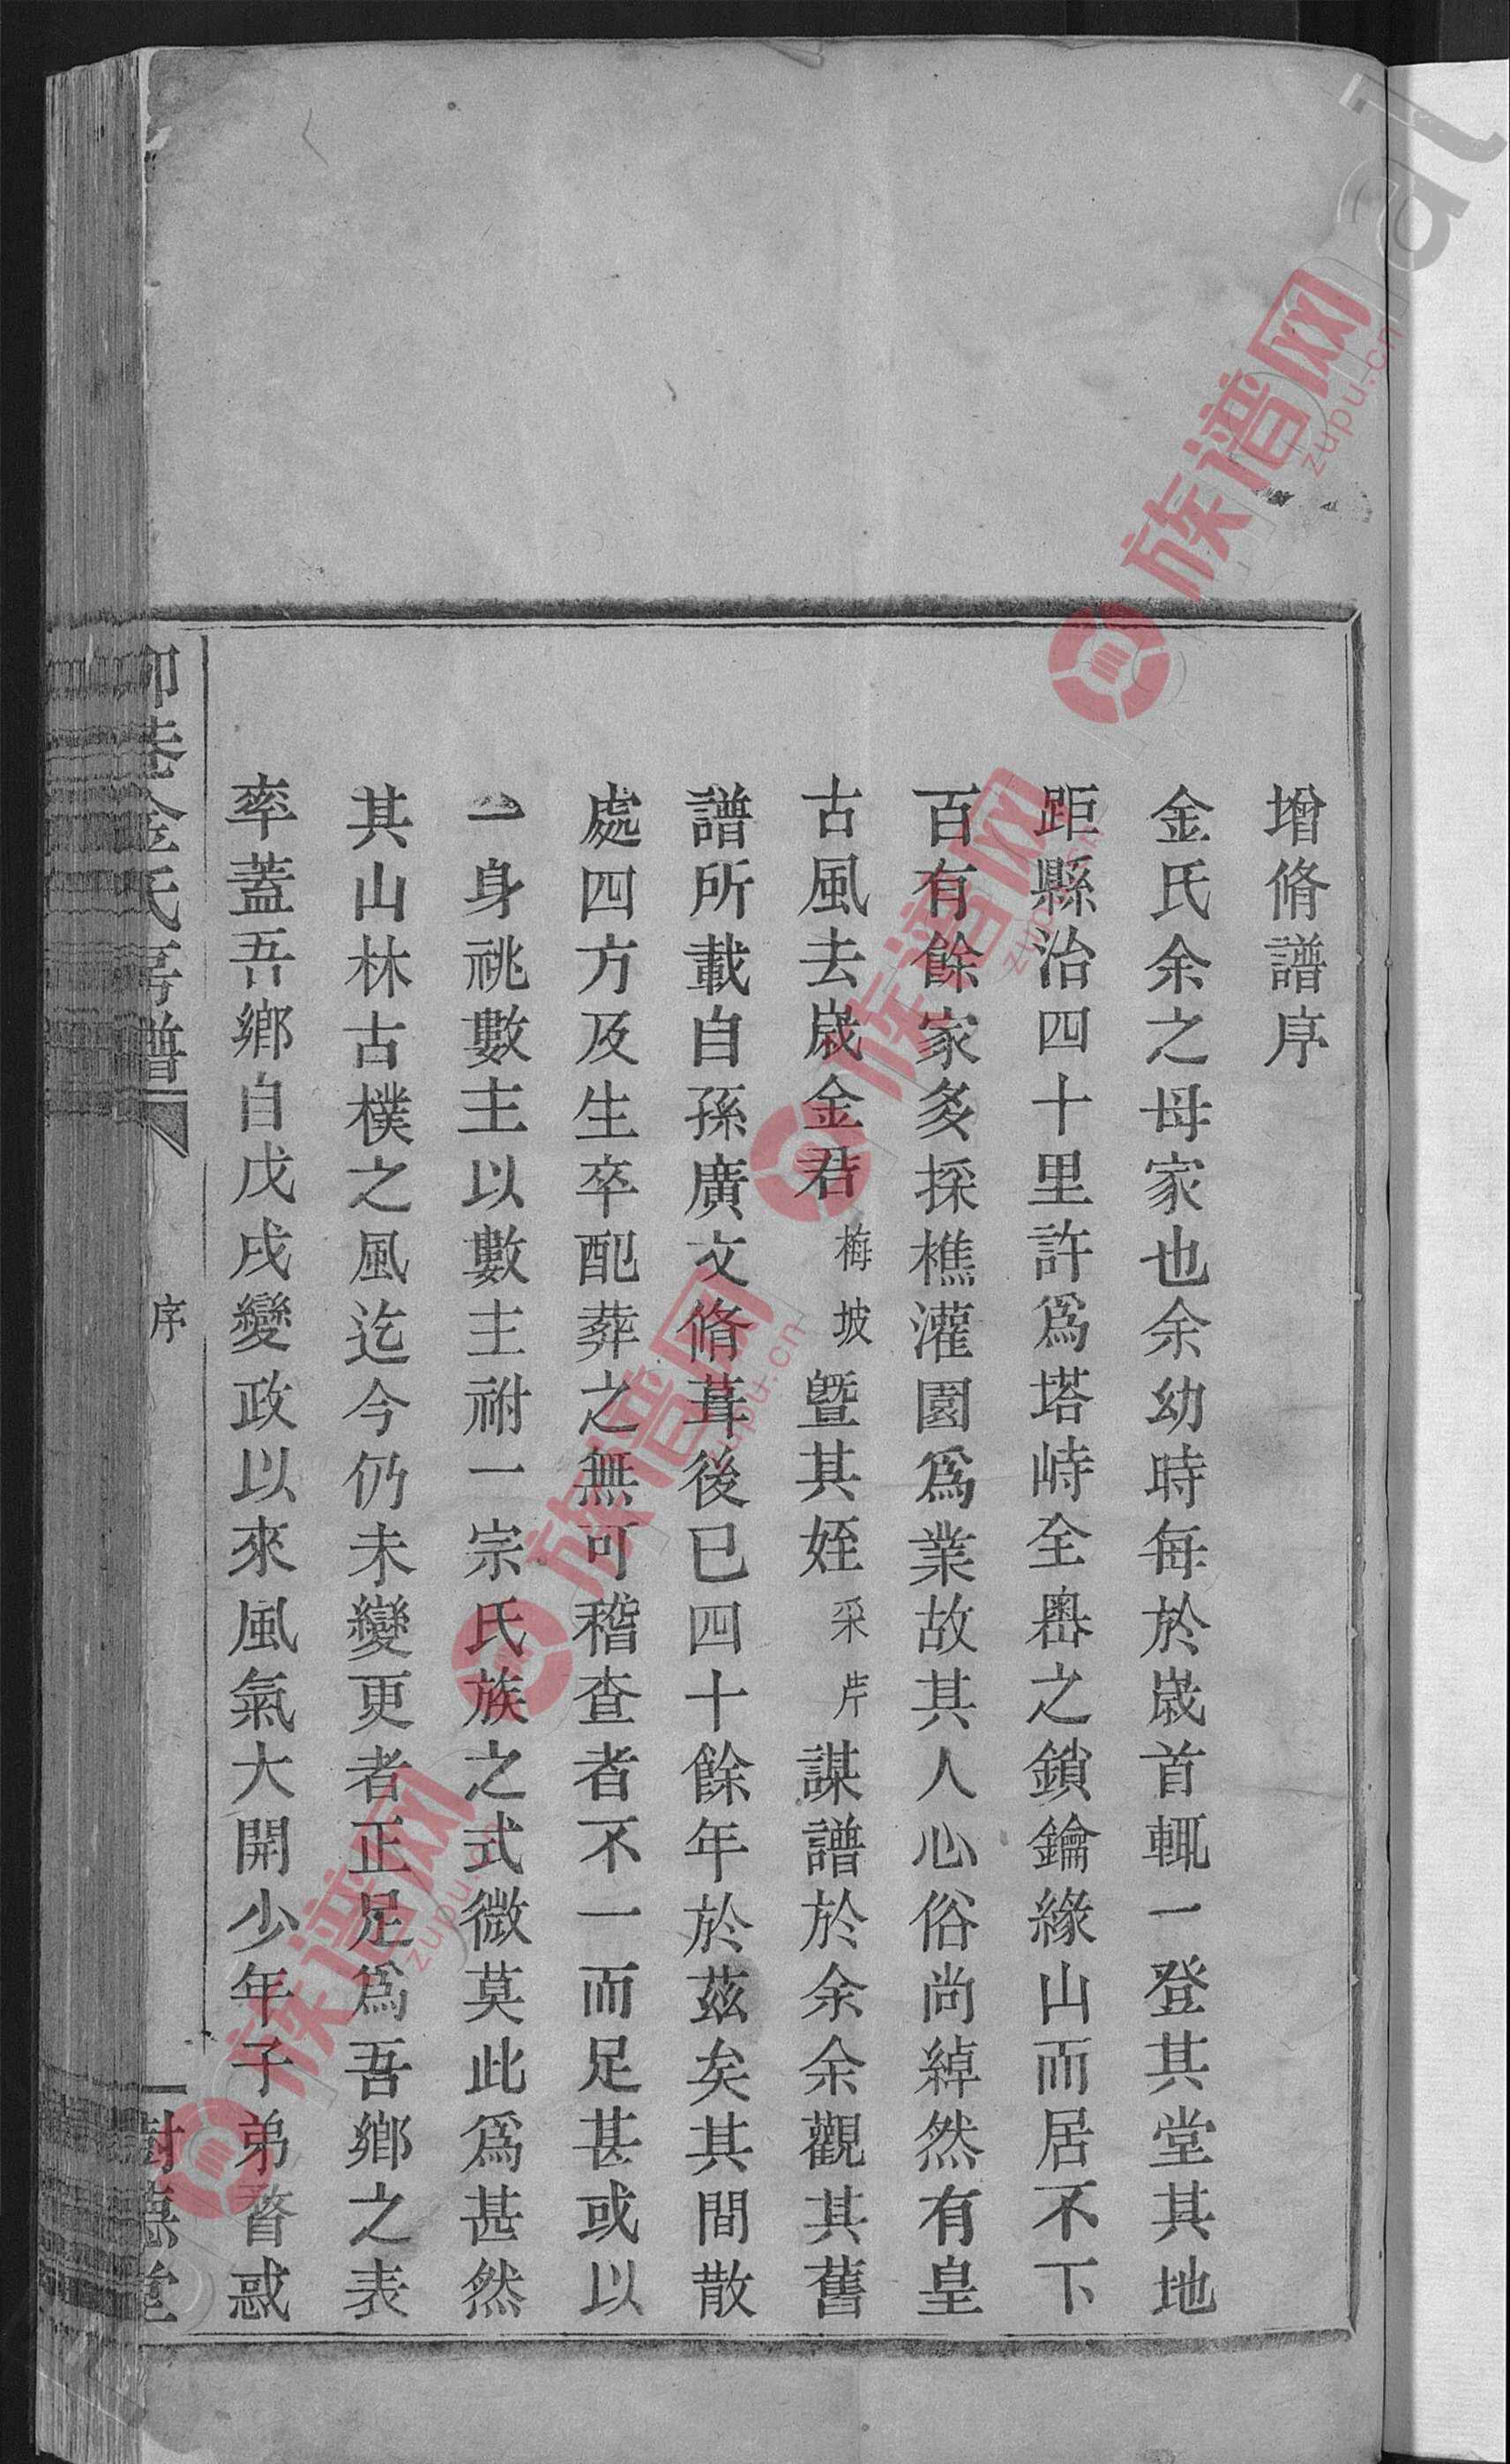 增脩譜序
金氏余之母家也余幼時每於歲首輒一登其堂其地
距縣治四十里許爲塔峙全嶴之鎖鑰緣山而居不下
百有餘家多採樵灌園爲業故其人心俗尚綽然有皇
古風去歲金君梅坡曁其姪采芹謀譜於余余觀其舊
譜所載自孫廣文脩葺後已四十餘年於茲矣其間散
處四方及生卒配葬之無可稽查者不一而足甚或以
一身祧數主以數主祔一宗氏族之式微莫此爲甚然
其山林古樸之風迄今仍未變更者正足爲吾鄉之表
率蓋吾鄉自戊戌變政以來風氣大開少年子弟瞀惑
金氏房譜
序
一樹德堂
族谱网
zupu.cn